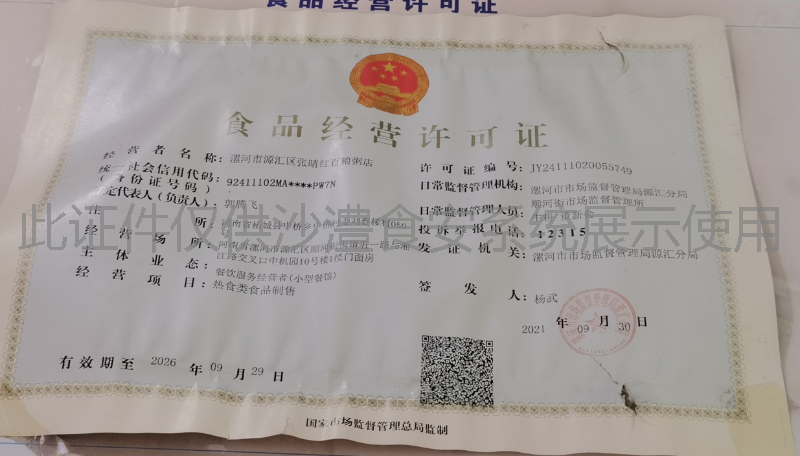 食品经营许可证
食品经营许可证
经营者名称：漯河市源汇区张晴红百粮粥店
统一社会信用代码：
(身份证号码) 92411102MA****PW7N
定代表人(负责人)：郭腾飞
住所：
经营场所：河南省漯河市源汇区顺河街
江路交叉口中机园10号楼1楼门面房
主体业态：餐饮服务经营者(小型餐馆)
经营项目：热食类食品制售
有效期至 2026 年 09 月 29 日
许可证编号：JY24111020055749
日常监督管理机构：漯河市市场监督管理局源汇分局
顺河街市场监督管理所
日常监督管理人员：
投诉举报电话：12315
发证机关：漯河市市场监督管理局源汇分局
签发人：杨武
2021 年 09 月 30 日
此证件仅供沙澧食安系统展示使用
国家市场监督管理总局监制